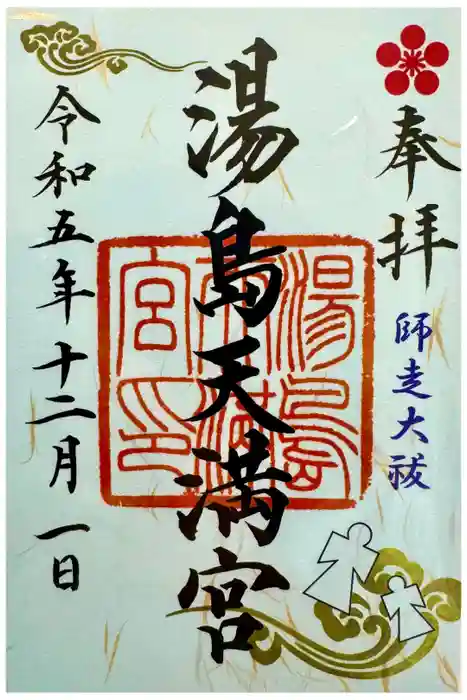 奉拝
師走大祓
湯島天満宮
湯島天満宮印
令和五年十二月一日